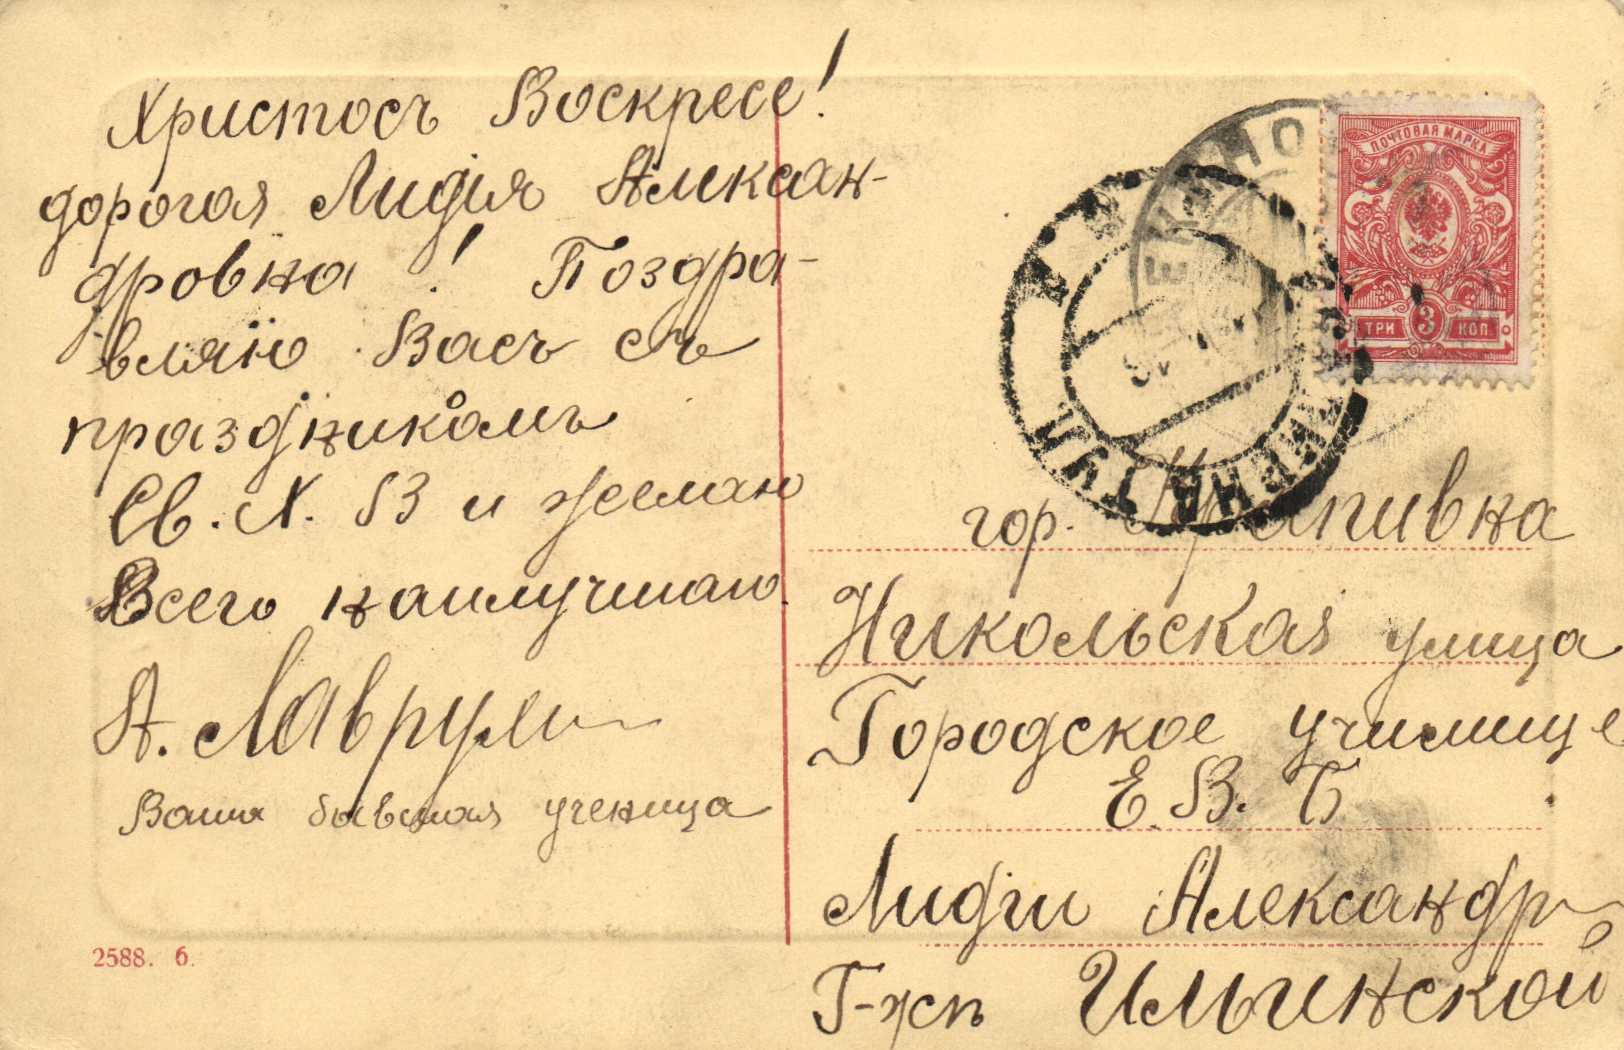 Христосъ Воскресе!
дорогая Лидія Алексан-
дровна! Поздра-
вляю Васъ съ
праздникомъ
Св. Х. В и желаю
Всего наилучшаго.
А. Лаврул
Ваша бывшая ученица
2588. 6.
ПОЧТОВАЯ МАРКА
ТРИ 3 КОП
КРАПИВНА ТУЛ
гор. Крапивна
Никольская улица
Городское училище
Е. В. Б.
Лидіи Александр
Г-жѣ Ильинской